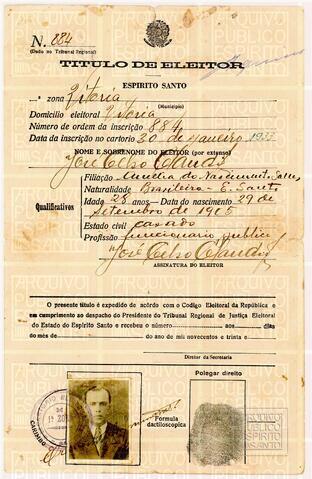 N. 884
(Dado no Tribunal Regional)
TITULO DE ELEITOR
ESPIRITO SANTO
ª zona Vitoria
(Municipio)
Domicilio eleitoral Vitoria
Número de ordem da inscrição 884
Data da inscrição no cartorio 30 de Janeiro 1933
NOME E SOBRENOME DO ELEITOR (por extenso)
José Celso Claudio
Qualificativos
Filiação Amelia do Nascimento
Naturalidade Brasileira - E. Santo
Idade 28 anos — Data do nascimento 29 de
setembro de 1905
Estado civil casado
Profissão funcionario publico
José Celso Claudio
ASSINATURA DO ELEITOR
O presente titulo é expedido de acôrdo com o Codigo Eleitoral da República e
em cumprimento ao despacho do Presidente do Tribunal Regional de Justiça Eleitoral
do Estado do Espirito Santo e recebeu o número aos dias
do mês de do ano de mil novecentos e trinta e
Director da Secretaria
Polegar direito
Fórmula
dactiloscopica
ARQUIVO
PÚBLICO
ESPÍRITO
SANTO